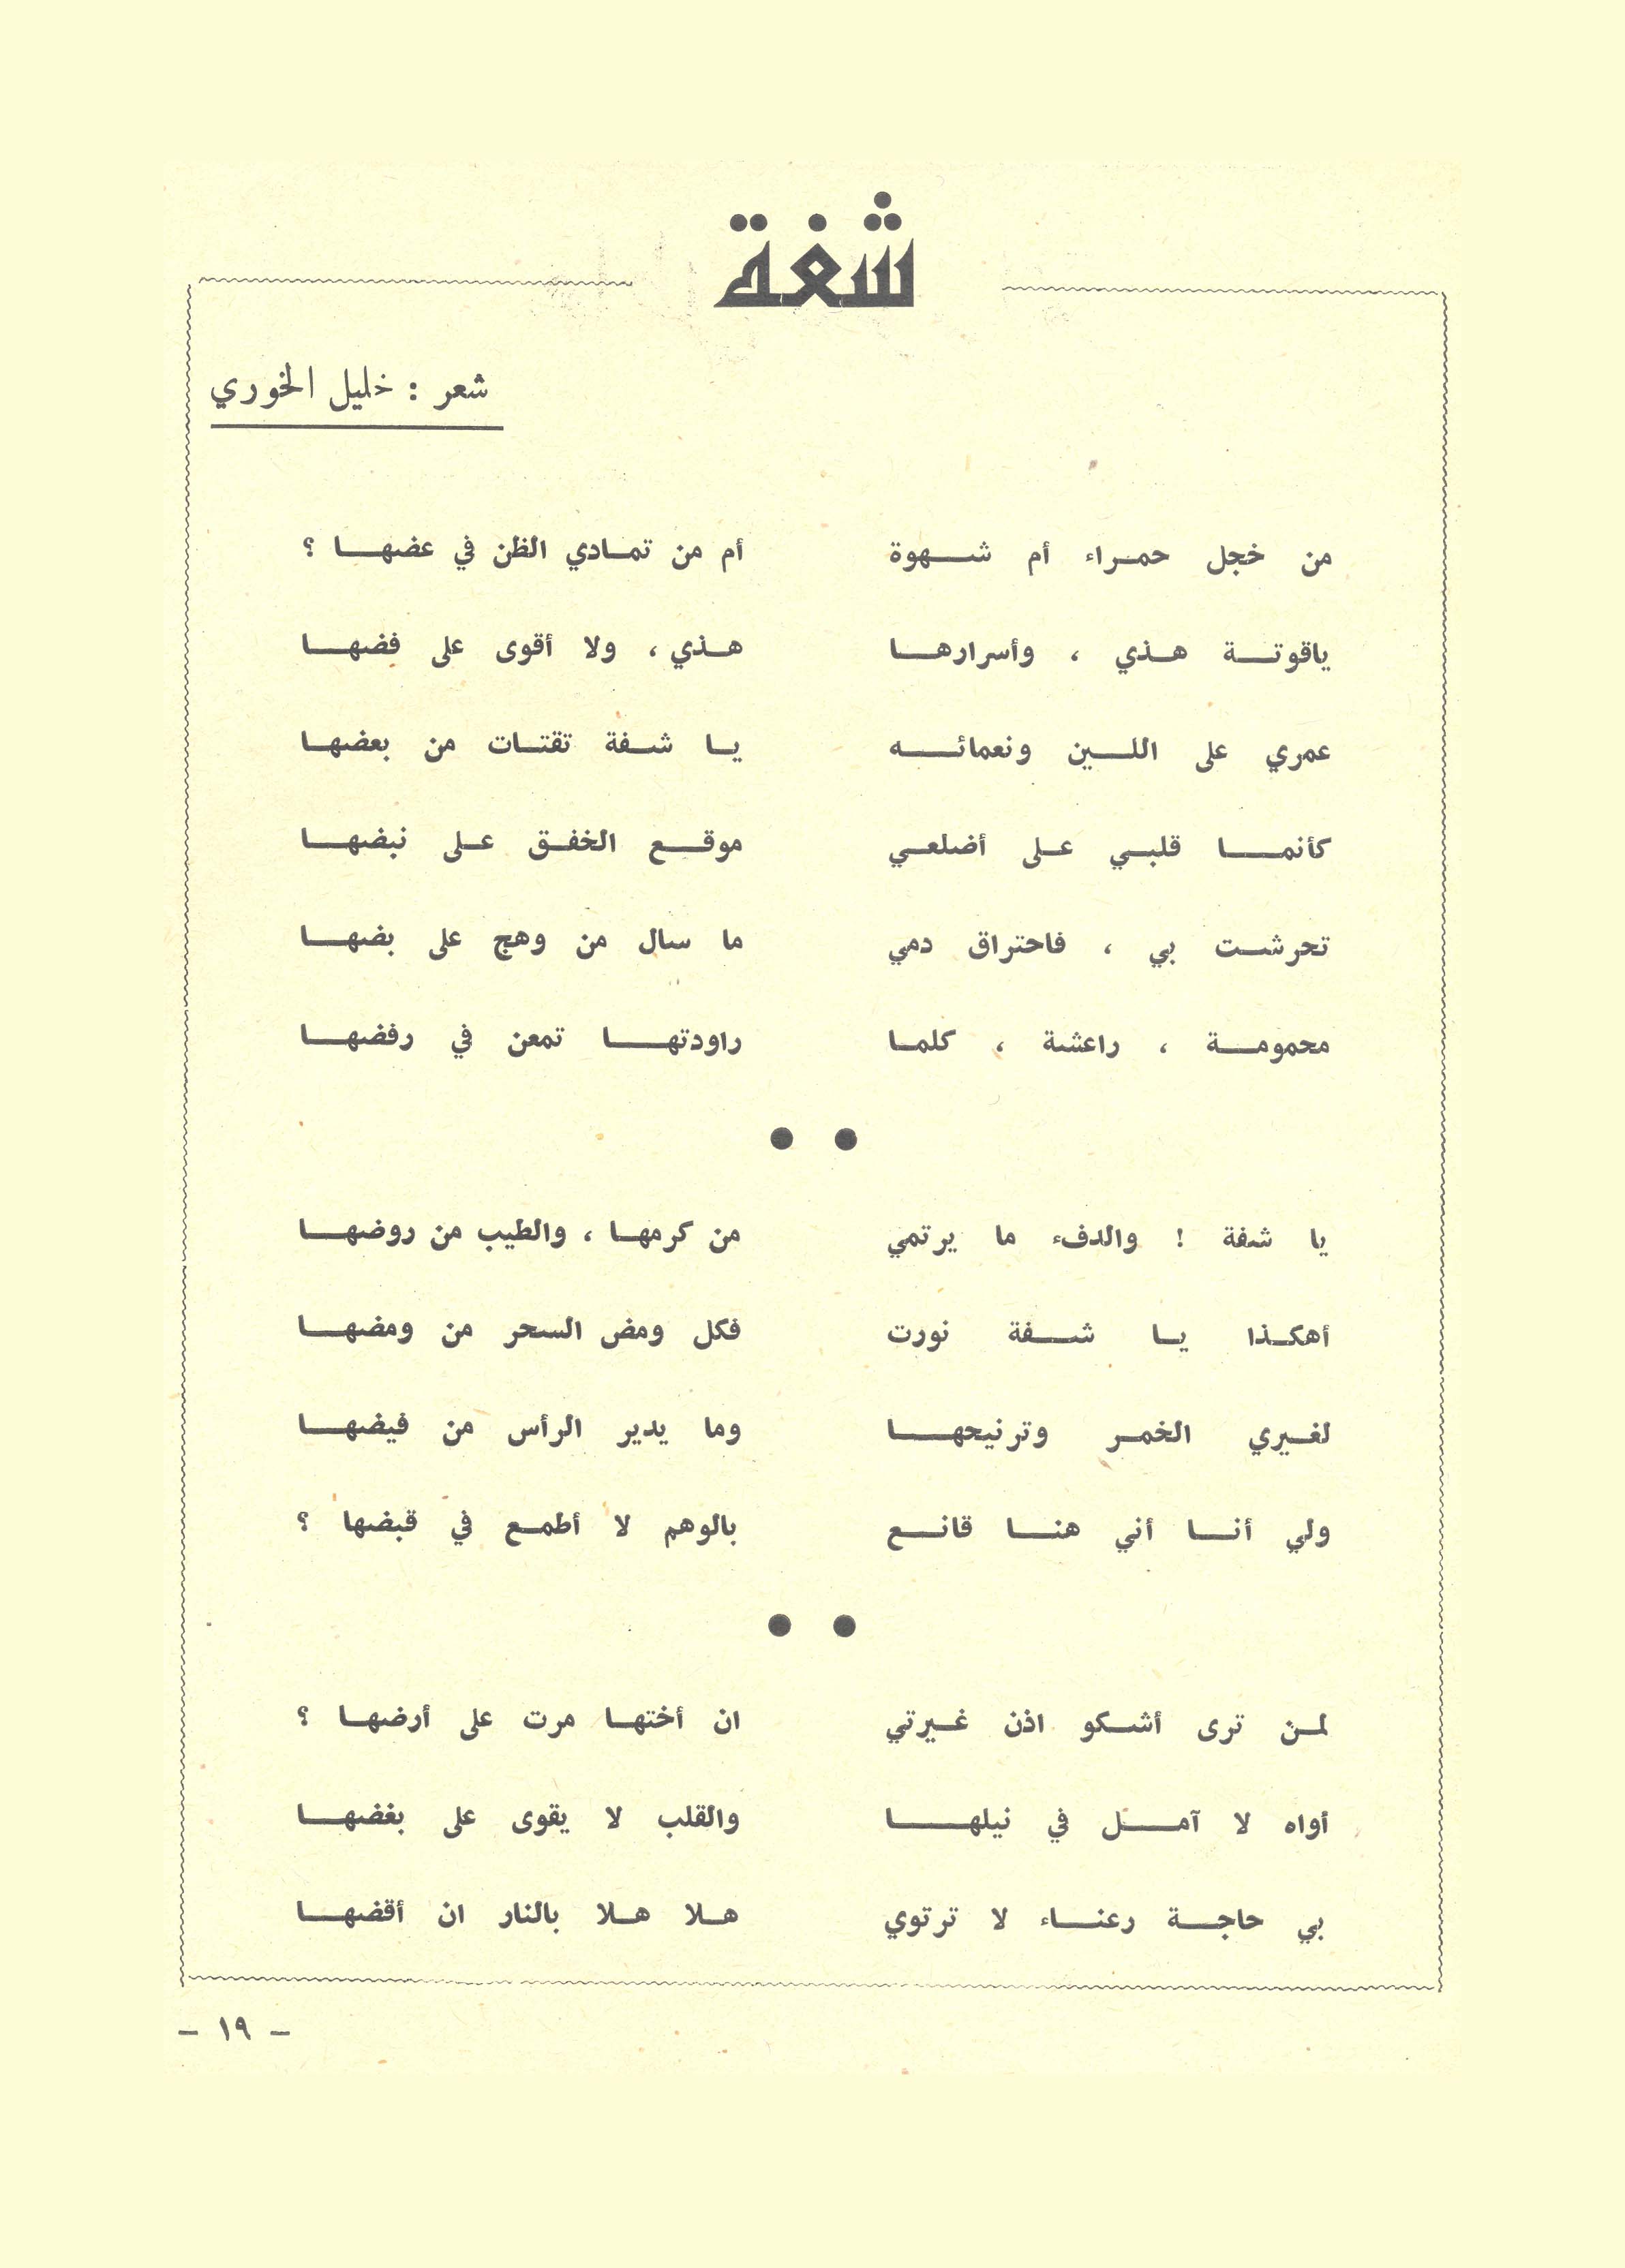 شفة
شعر : خليل الخوري
من خجل حمراء أم شهوة أم من تمادي الظن في عضها ؟
ياقوتة هذي ، وأسرارها هذي ، ولا أقوى على فضها
عمري على اللين ونعمائه يا شفة تقتات من بعضها
كأنما قلبي على أضلعي موقع الخفق على نبضها
تحرشت بي ، فاحتراق دمي ما سال من وهج على بضها
محمومة ، راعشة ، كلما راودتها تمعن في رفضها
● ●
يا شفة ! والدفء ما يرتمي من كرمها ، والطيب من روضها
أهكذا يا شفة نورت فكل ومض السحر من ومضها
لغيري الخمر وترنيحها وما يدير الرأس من فيضها
ولي أنا أني هنا قانع بالوهم لا أطمع في قبضها ؟
● ●
لمن ترى أشكو اذن غيرتي ان أختها مرت على أرضها ؟
أواه لا آمل في نيلها والقلب لا يقوى على بغضها
بي حاجة رعناء لا ترتوي هلا هلا بالنار ان أقضها
- ١٩ -